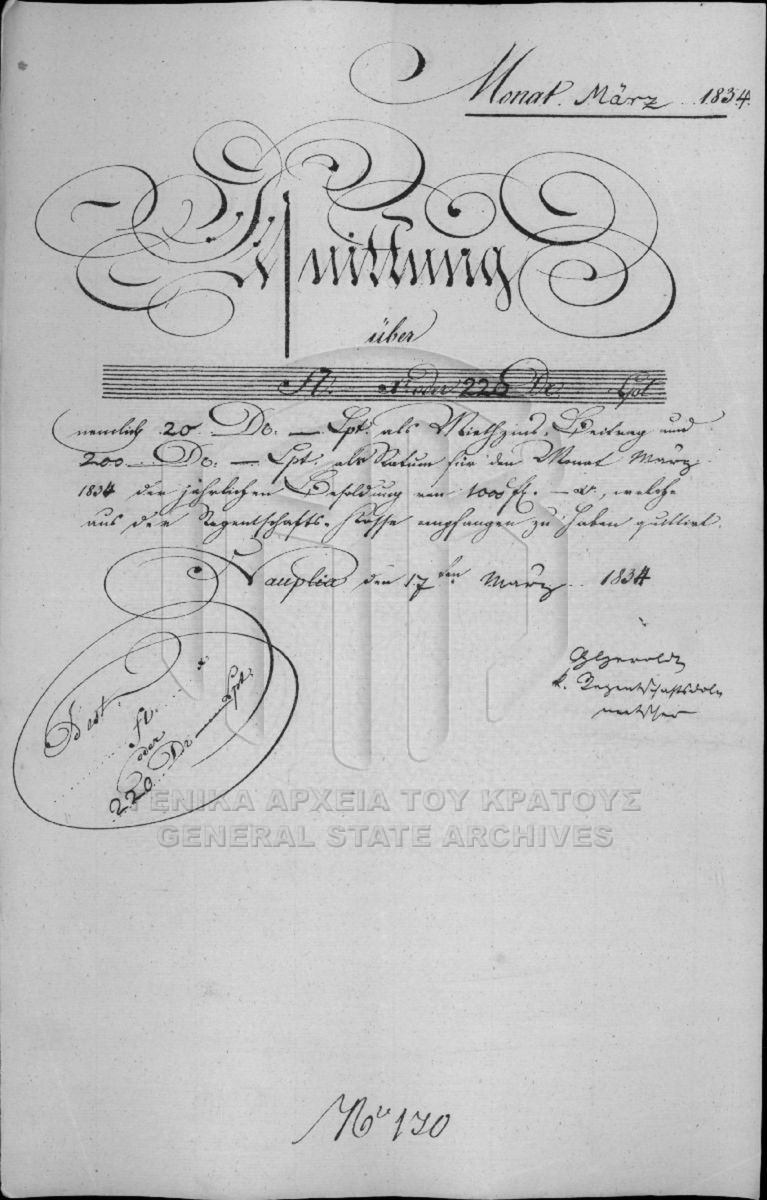 Monat März 1834.
Quittung
über
Fl. oder 220 Dr. Lpt
nemlich 20 Dr. — Lpt. als Miethzins-Beitrag und
200 Dr. — Lpt. als Ratum für den Monat März
1834 der jährlichen Besoldung von 1000 fl. — x, welche
aus der Regentschafts-Kasse empfangen zu haben quittirt.
Nauplia den 17ten März 1834
k. Regentschaftsdol
metscher
Best.
Fl. x
oder
220 Dr — Lpt.
ΓΕΝΙΚΑ ΑΡΧΕΙΑ ΤΟΥ ΚΡΑΤΟΥΣ
GENERAL STATE ARCHIVES
No 170